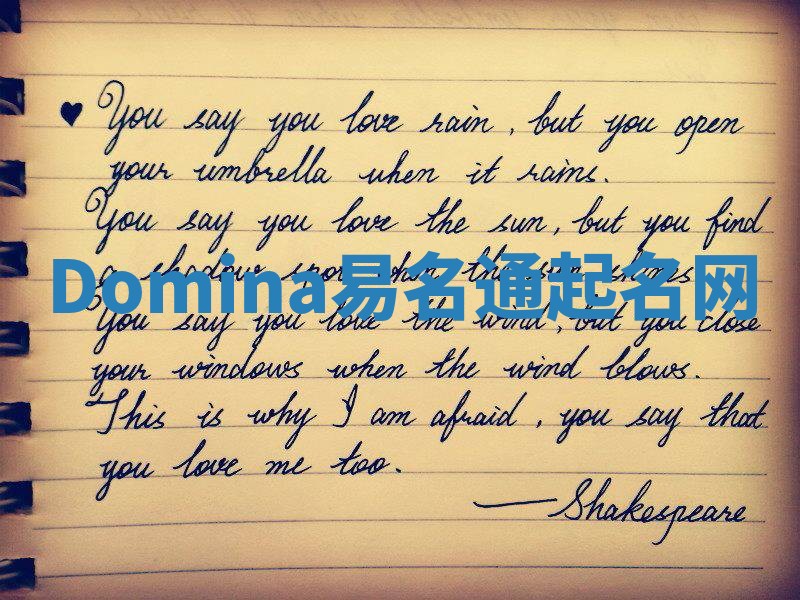 ♥ You say you love rain, but you open
your umbrella when it rains.
You say you love the sun, but you find
a shadow spot when the sun shines
Domina易名通起名网
You say you love the wind, but you close
your windows when the wind blows.
This is why I am afraid, you say that
you love me too.
— Shakespeare